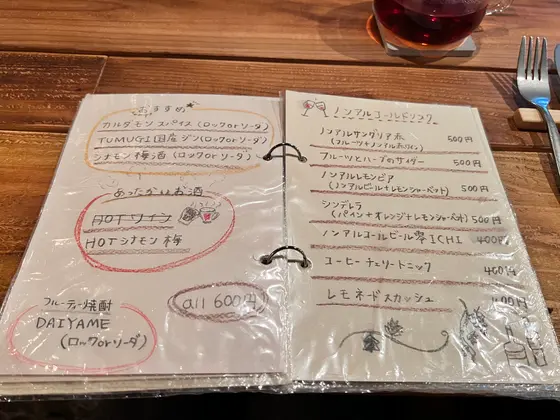 おすすめ
カルダモンスパイス(ロックorソーダ)
TUMUGI国産ジン(ロックorソーダ)
シナモン梅酒(ロックorソーダ)
あったかいお酒
HOTワイン
HOTシナモン梅
all 600円
フルーティー焼酎
DAIYAME
(ロックorソーダ)
ノンアルコールドリンク
ノンアルサングリア赤
(フルーツ+ノンアル赤ワイン) 500円
フルーツとハーブのサイダー 500円
ノンアルレモンビア
(ノンアルビール+レモンシャーベット) 500円
シンデレラ
(パイン+オレンジ+レモンシャーベット) 500円
ノンアルコールビール零ICHI 400円
コーヒーチェリートニック 460円
レモネードスカッシュ 400円